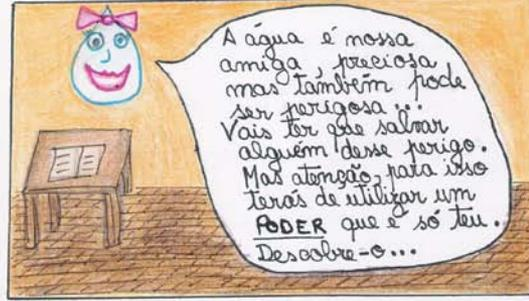 A água é nossa
amiga, preciosa
mas também pode
ser perigosa...
Vais ter que salvar
alguém desse perigo.
Mas atenção, para isso
terás de utilizar um
PODER que é só teu.
Descobre-o...